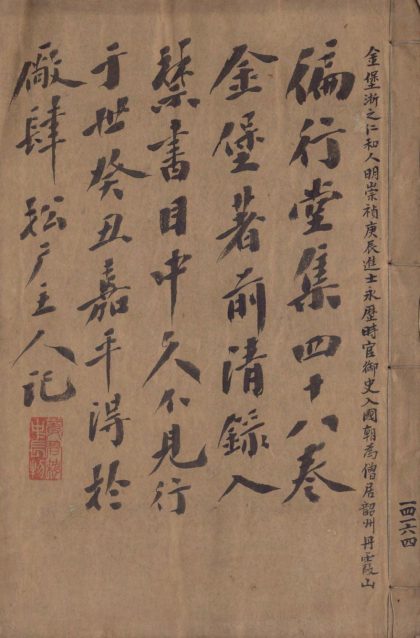 一四一六四
金堡浙之仁和人明崇禎庚辰進士永歷時官御史入國朝為僧居韶州丹霞山
徧行堂集四十八卷
金堡著前清錄入
禁書目中久不見行
于世癸丑嘉平得於
廠肆 主人記